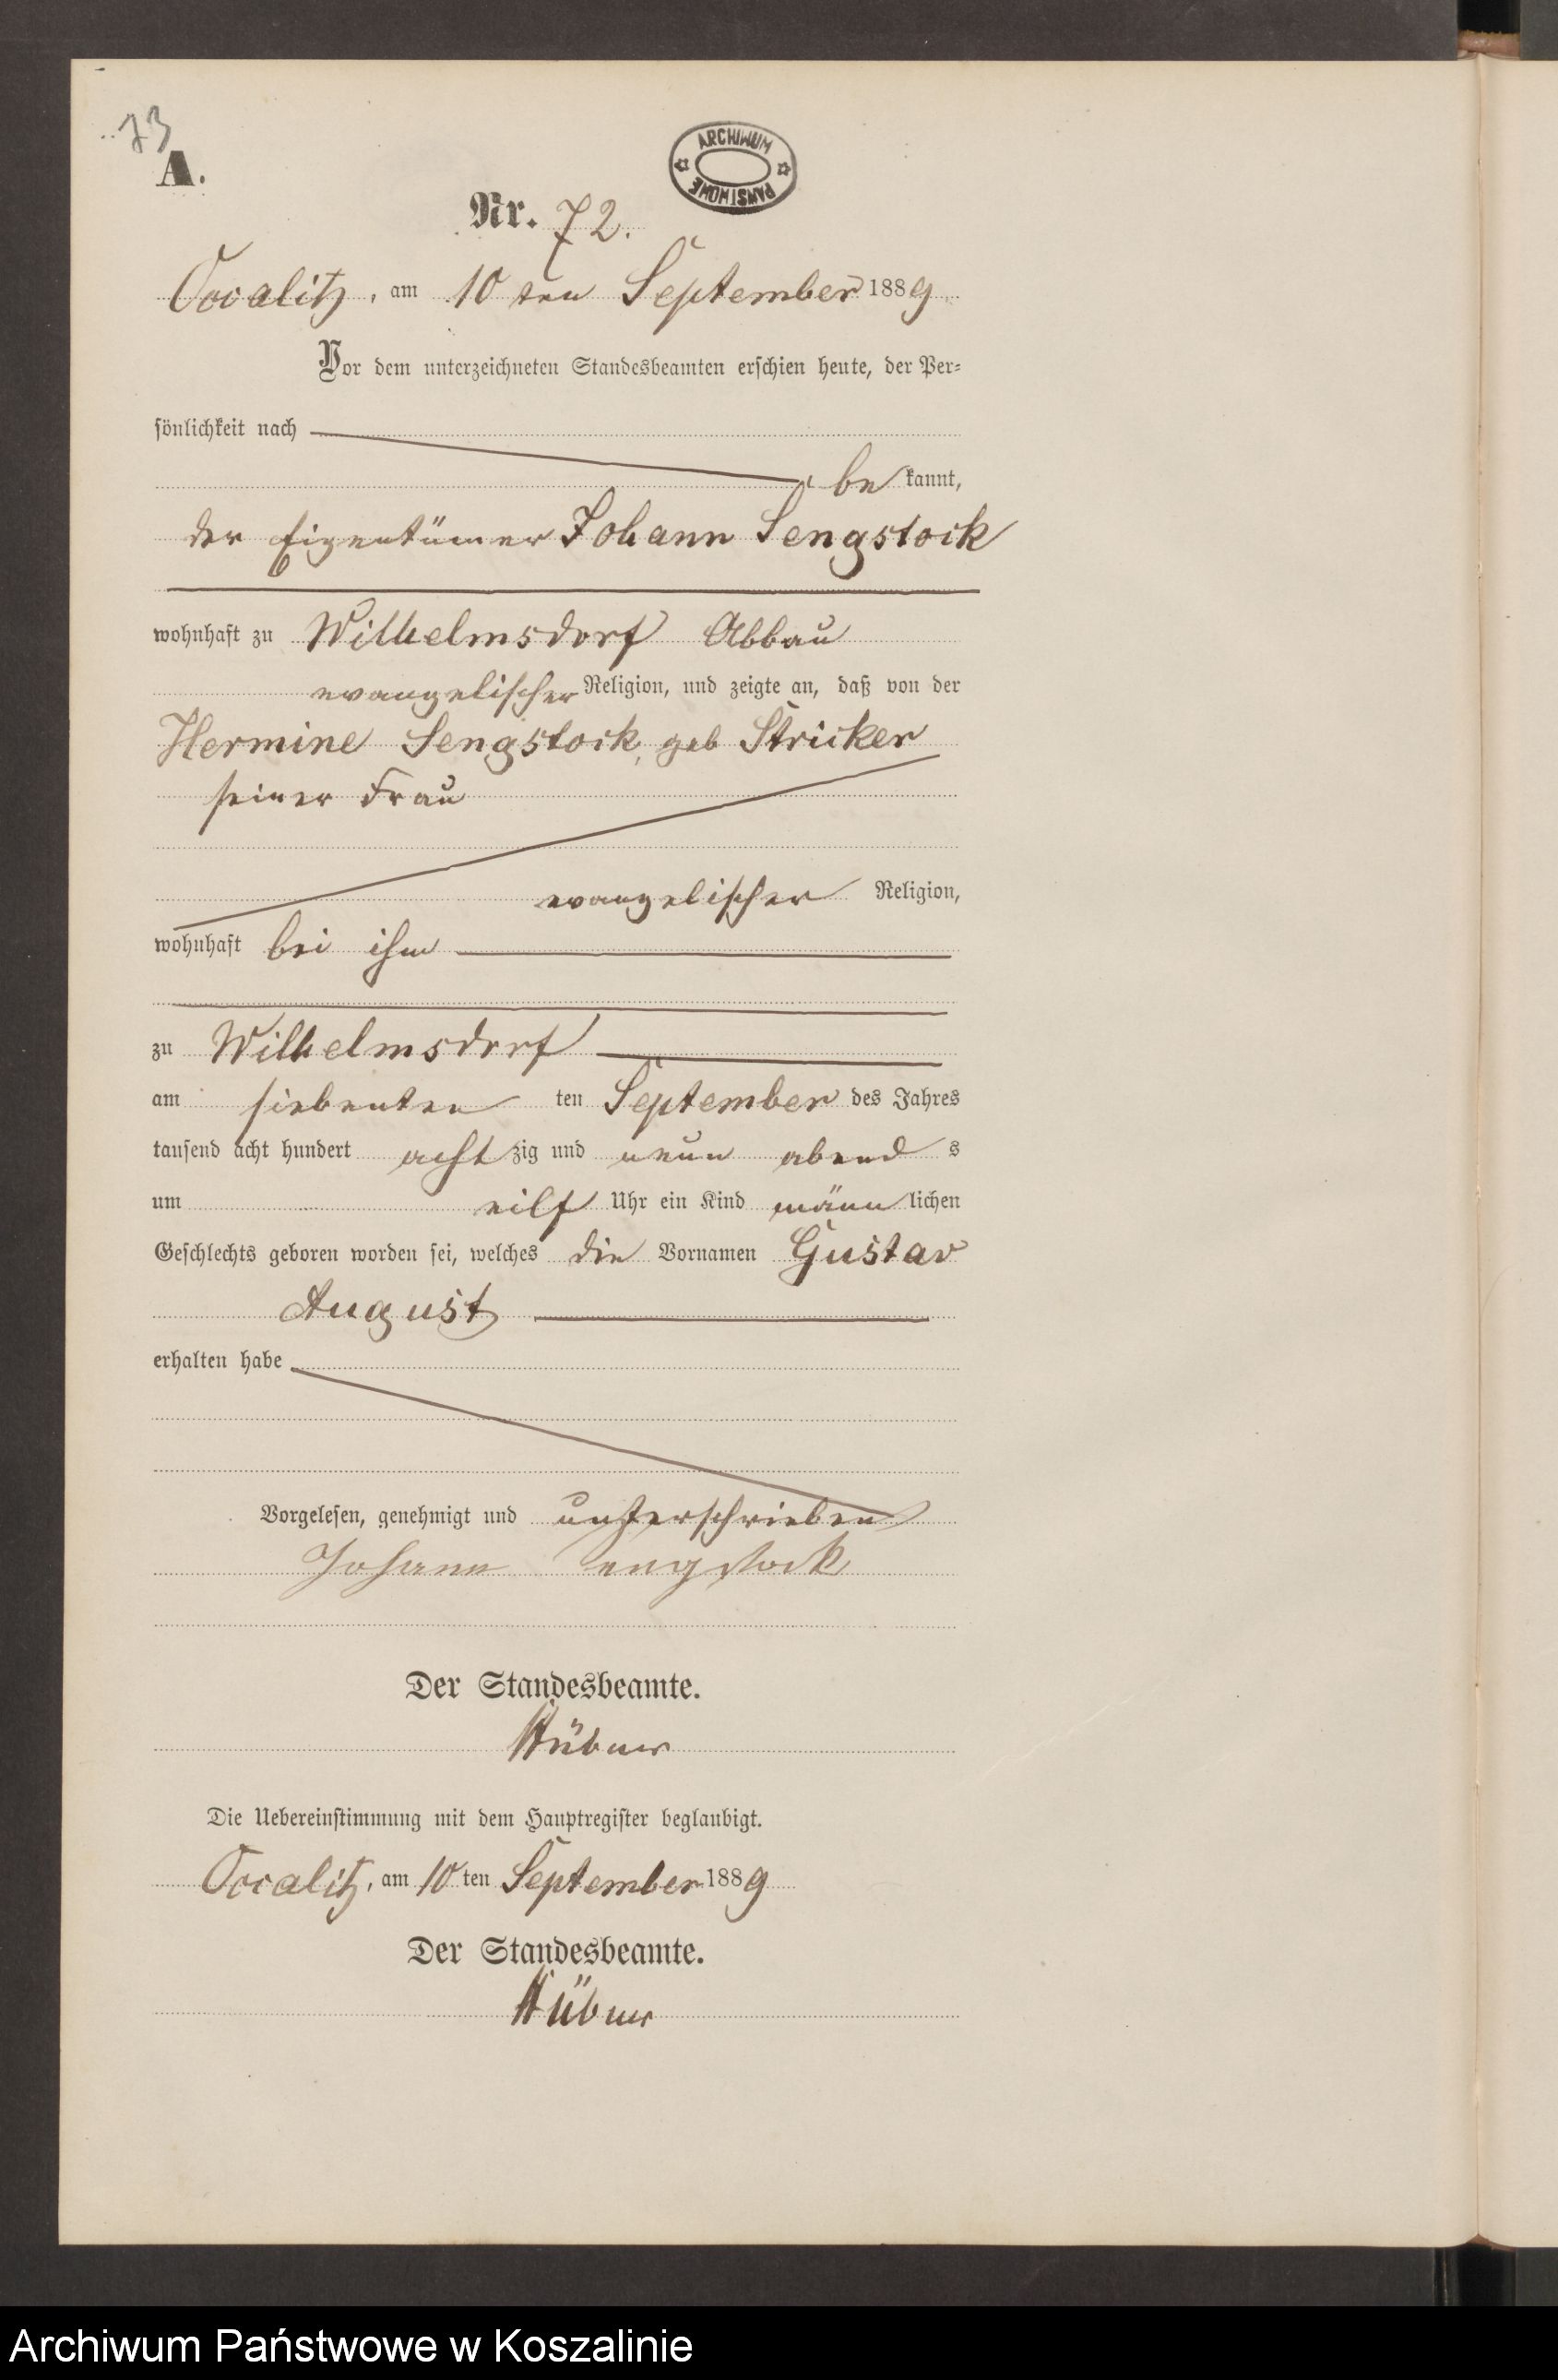 73
A.
ARCHIWUM PAŃSTWOWE
Nr. 72.
Occalitz, am 10 ten September 1889
Vor dem unterzeichneten Standesbeamten erschien heute, der Per-
sönlichkeit nach
be kannt,
der Eigentümer Johann Sengstock
wohnhaft zu Wilhelmsdorf Abbau
evangelischer Religion, und zeigte an, daß von der
Hermine Sengstock, geb Stricker
seiner Frau
evangelischer Religion,
wohnhaft bei ihm
zu Wilhelmsdorf
am siebenten ten September des Jahres
tausend acht hundert acht zig und neun abend s
um eilf Uhr ein Kind männ lichen
Geschlechts geboren worden sei, welches die Vornamen Gustav
August
erhalten habe
Vorgelesen, genehmigt und unterschrieben
Johann Sengstock
Der Standesbeamte.
Hübner
Die Uebereinstimmung mit dem Hauptregister beglaubigt.
Occalitz, am 10 ten September 1889
Der Standesbeamte.
Hübner
Archiwum Państwowe w Koszalinie